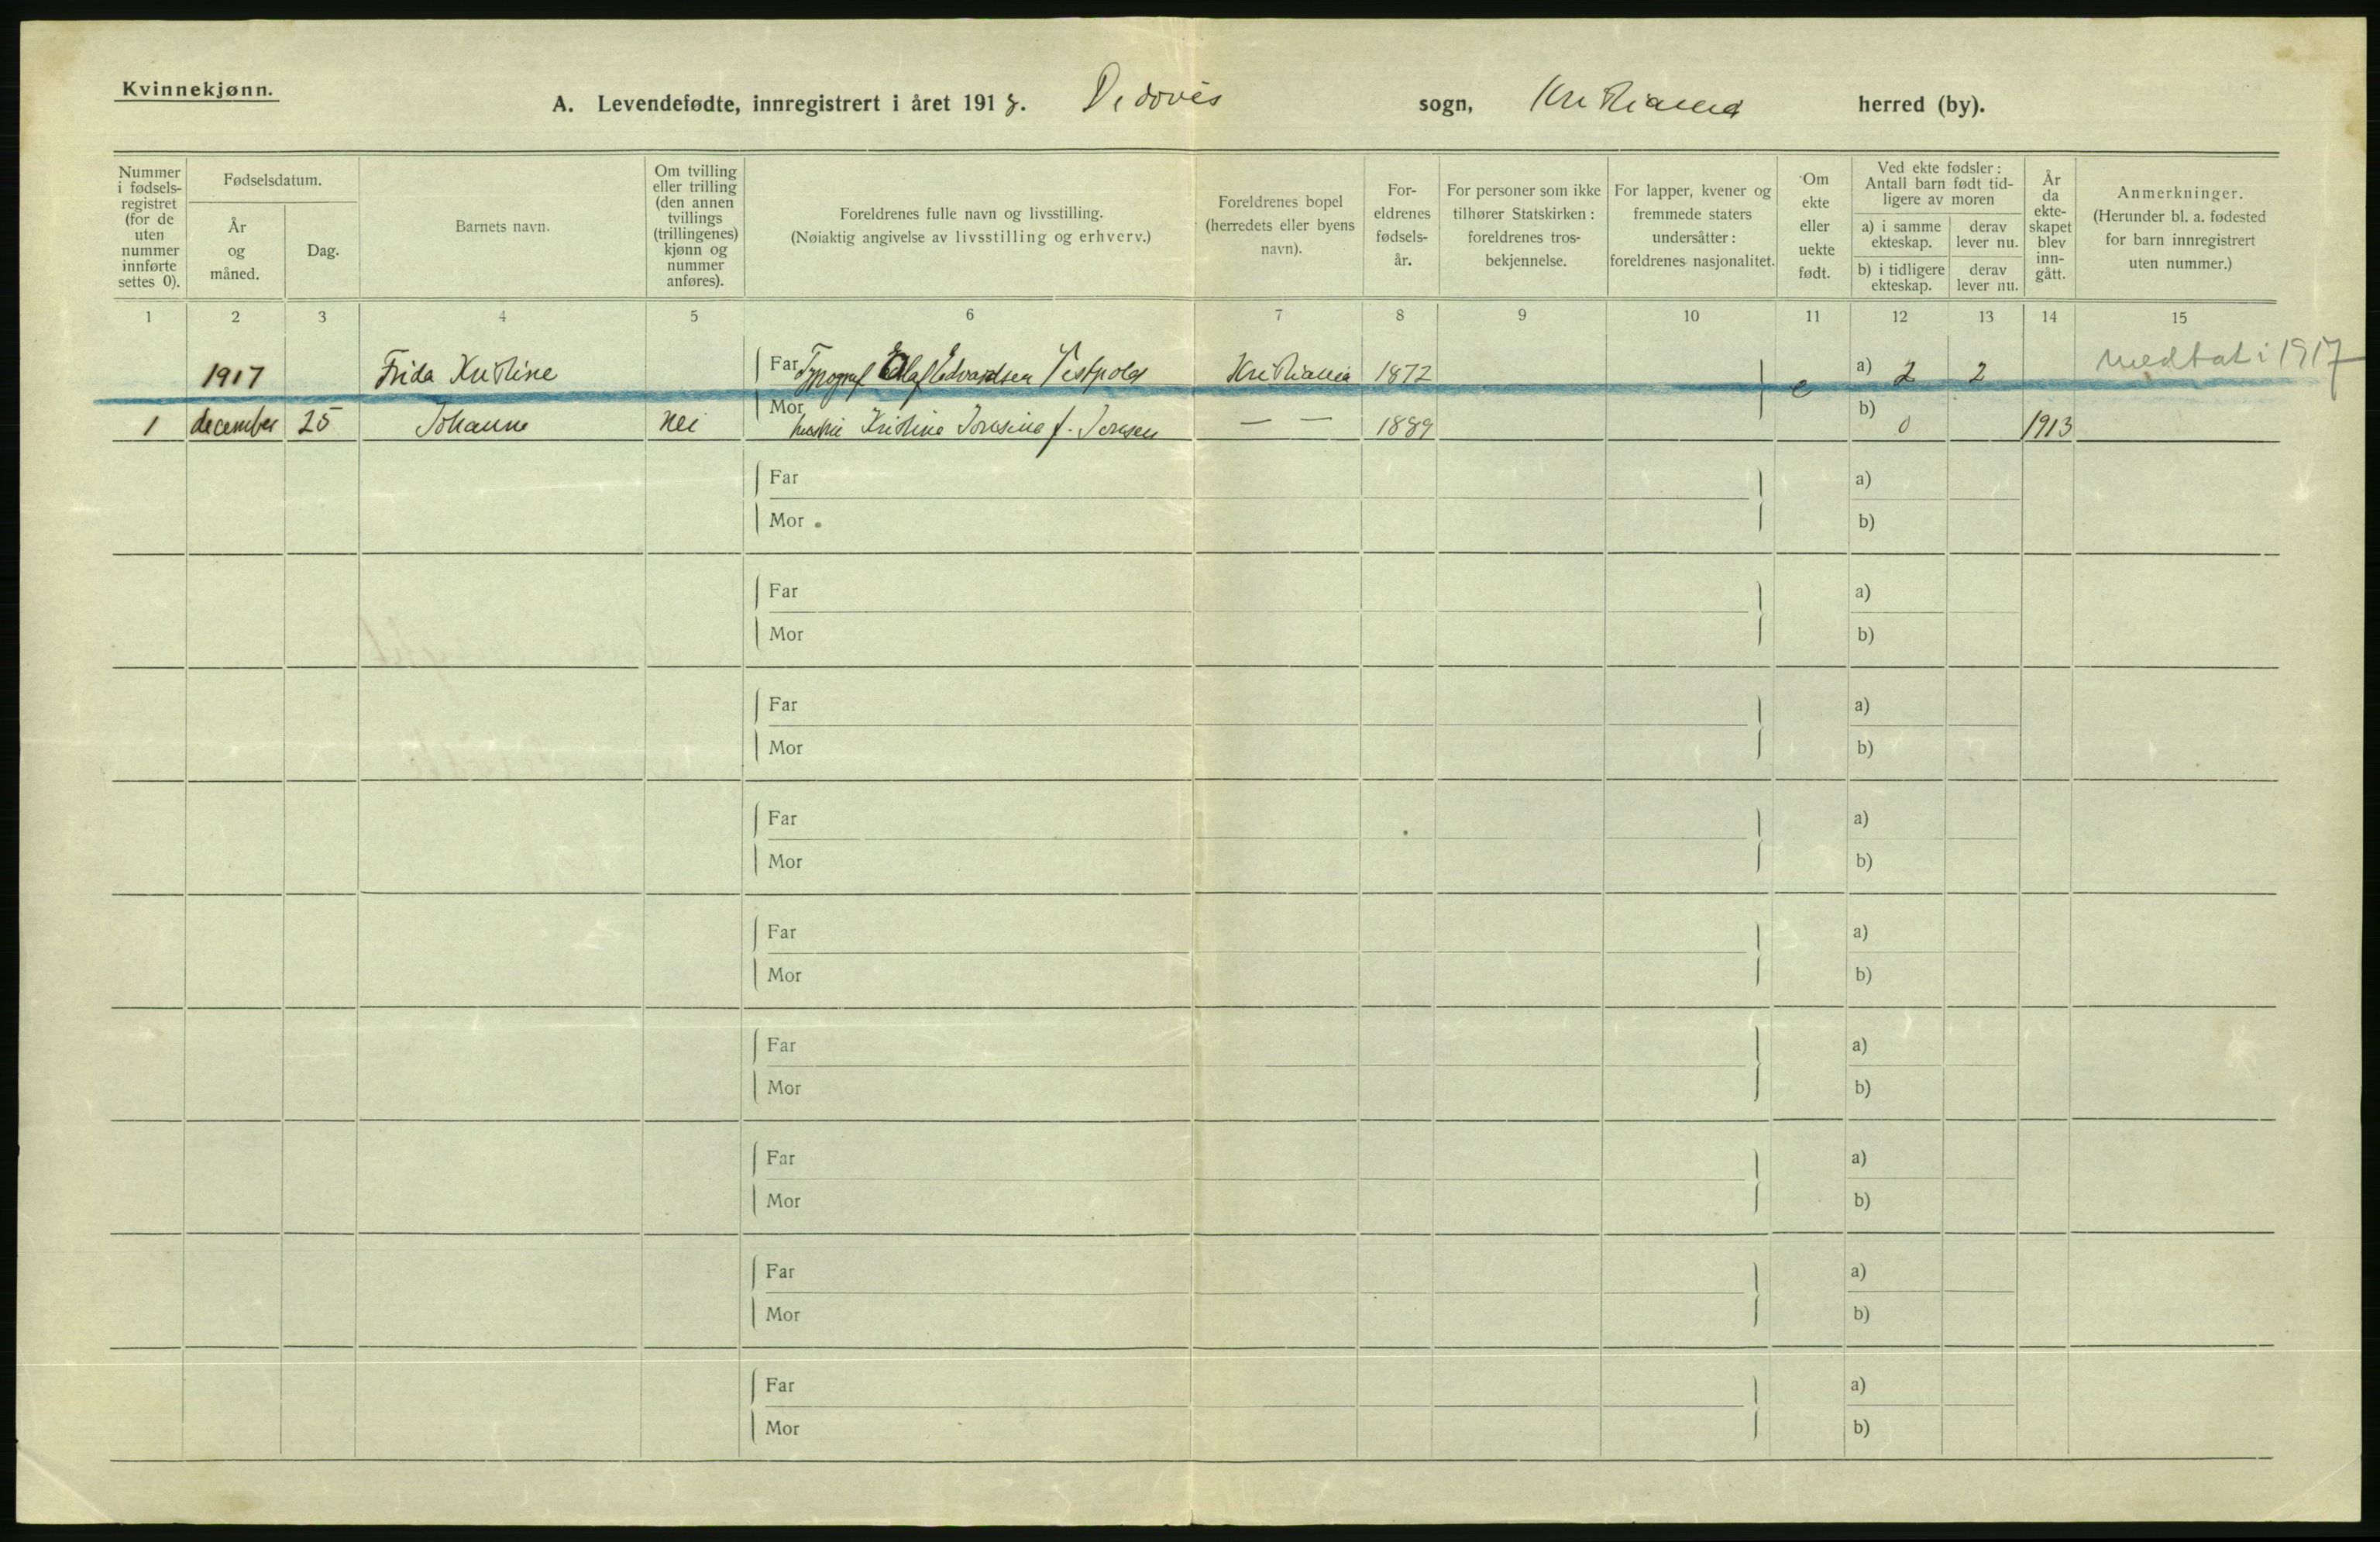 Kvinnekjønn.
A. Levendefødte, innregistrert i året 1918. De døves sogn, Kristiania herred (by).
Nummer i fødsels-registret (for de uten nummer innførte settes 0).
Fødselsdatum.
År og måned.
Dag.
Barnets navn.
Om tvilling eller trilling (den annen tvillings (trillingenes) kjønn og nummer anføres).
Foreldrenes fulle navn og livsstilling.
(Nøiaktig angivelse av livsstilling og erhverv.)
Foreldrenes bopel (herredets eller byens navn).
For-eldrenes fødsels-år.
For personer som ikke tilhører Statskirken: foreldrenes tros-bekjennelse.
For lapper, kvener og fremmede staters undersåtter: foreldrenes nasjonalitet.
Om ekte eller uekte født.
Ved ekte fødsler: Antall barn født tid-ligere av moren
a) i samme ekteskap.
derav lever nu.
b) i tidligere ekteskap.
derav lever nu.
År da ekte-skapet blev inn-gått.
Anmerkninger.
(Herunder bl. a. fødested for barn innregistrert uten nummer.)
1 2 3 4 5 6 7 8 9 10 11 12 13 14 15
1917 Frida Kristine Far Typograf Olaf Edvardsen Kristiania 1872 e a) 2 2 medtat i 1917
1 december 25 Johanne nei Mor hustru Kristine f. Jensen — — 1889 b) 0 1913
Far a)
Mor b)
Far a)
Mor b)
Far a)
Mor b)
Far a)
Mor b)
Far a)
Mor b)
Far a)
Mor b)
Far a)
Mor b)
Far a)
Mor b)
Far a)
Mor b)